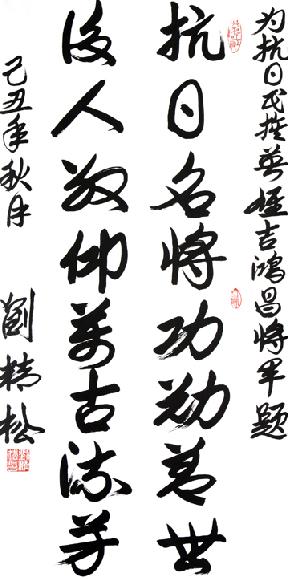 为抗日民族英雄吉鸿昌将军题
抗日名将功勋盖世
後人敬仰萬古流芳
己丑年秋月
劉精松